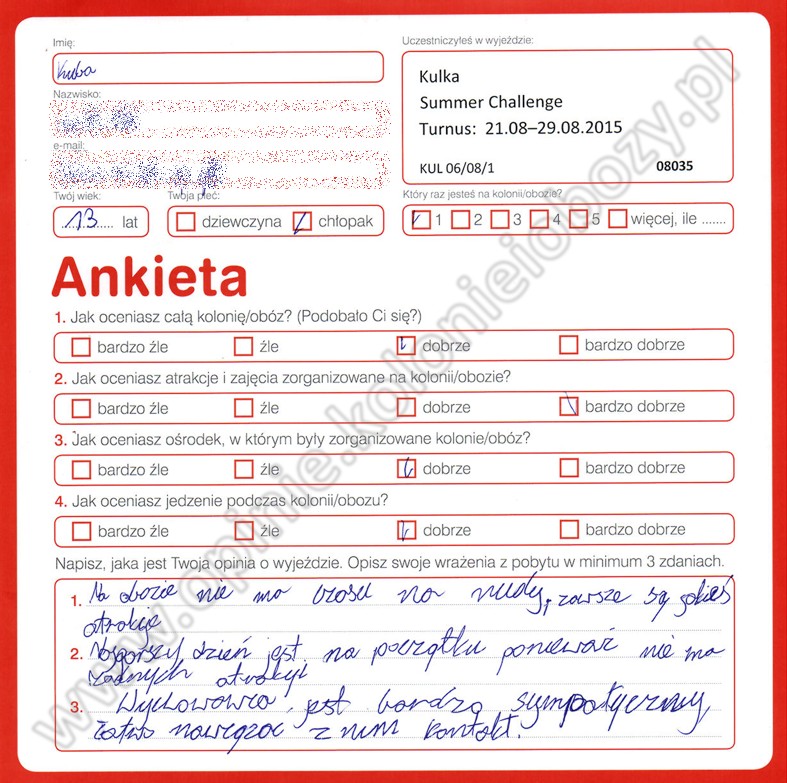 Imię:
Uczestniczyłeś w wyjeździe:
Kuba
Kulka
Nazwisko:
Summer Challenge
Turnus: 21.08–29.08.2015
e-mail:
KUL 06/08/1 08035
Twój wiek:
Twoja płeć:
Który raz jesteś na kolonii/obozie?
13 lat
dziewczyna chłopak
1 2 3 4 5 więcej, ile .......
Ankieta
1. Jak oceniasz całą kolonię/obóz? (Podobało Ci się?)
bardzo źle źle dobrze bardzo dobrze
2. Jak oceniasz atrakcje i zajęcia zorganizowane na kolonii/obozie?
bardzo źle źle dobrze bardzo dobrze
3. Jak oceniasz ośrodek, w którym były zorganizowane kolonie/obóz?
bardzo źle źle dobrze bardzo dobrze
4. Jak oceniasz jedzenie podczas kolonii/obozu?
bardzo źle źle dobrze bardzo dobrze
Napisz, jaka jest Twoja opinia o wyjeździe. Opisz swoje wrażenia z pobytu w minimum 3 zdaniach.
1. Na obozie nie ma czasu na nudy, zawsze są jakieś
atrakcje
2. Najgorszy dzień jest na początku ponieważ nie ma
żadnych atrakcji
3. Wychowawca jest bardzo sympatyczny,
łatwo nawiązać z nim kontakt.
www.opinie.kolonieiobozy.pl